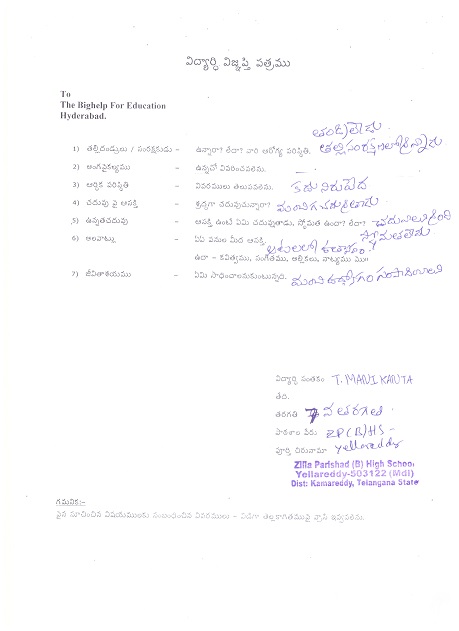 విద్యార్ధి విజ్ఞప్తి పత్రము
To
The Bighelp For Education
Hyderabad.
తండ్రిలేడు.
1) తల్లిదండ్రులు / సంరక్షకుడు – ఉన్నారా? లేదా? వారి ఆరోగ్య పరిస్థితి. తల్లి సంరక్షణలో
2) అంగవైకల్యము – ఉన్నచో వివరించవలెను. –
3) ఆర్ధిక పరిస్థితి – వివరములు తెలుపవలెను. కడు నిరుపేద
4) చదువు పై ఆసక్తి – శ్రద్ధగా చదువుచున్నారా? మంచిగ చదువుతాడు
5) ఉన్నతచదువు – ఆసక్తి ఉంటే ఏమి చదువుతాడు, స్తోమత ఉందా? లేదా? చదవాలనుంది
స్తోమతలేదు
6) అలవాట్లు – ఏఏ పనుల మీద ఆసక్తి.
ఉదా – కవిత్వము, సంగీతము, అల్లికలు, నాట్యము మొ॥
7) జీవితాశయము – ఏమి సాధించాలనుకుంటున్నది. మంచి ఉద్యోగం సంపాదించాలని
విద్యార్ధి సంతకం T. MANIKANTA
తేది.
తరగతి 7వ తరగతి.
పాఠశాల పేరు ZP(B)HS –
పూర్తి చిరునామా Yellareddy
Zilla Parishad (B) High School
Yellareddy-503122 (Mdl)
Dist: Kamareddy, Telangana State
గమనిక:-
పైన సూచించిన విషయములకు సంబంధించిన వివరములు – విడిగా తెల్లకాగితముపై వ్రాసి ఇవ్వవలెను.